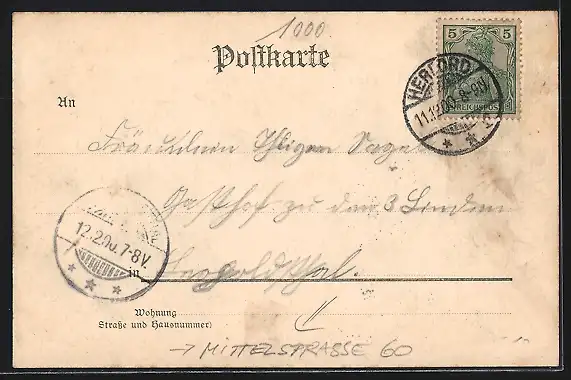 1000
Postkarte
5 5
REICHSPOST
HERFORD
An
Fräulein
Gasthof zu den 3 Linden
12.2.00. 7-8V.
in Leopoldsthal.
Wohnung
(Straße und Hausnummer)
→ MITTELSTRASSE 60